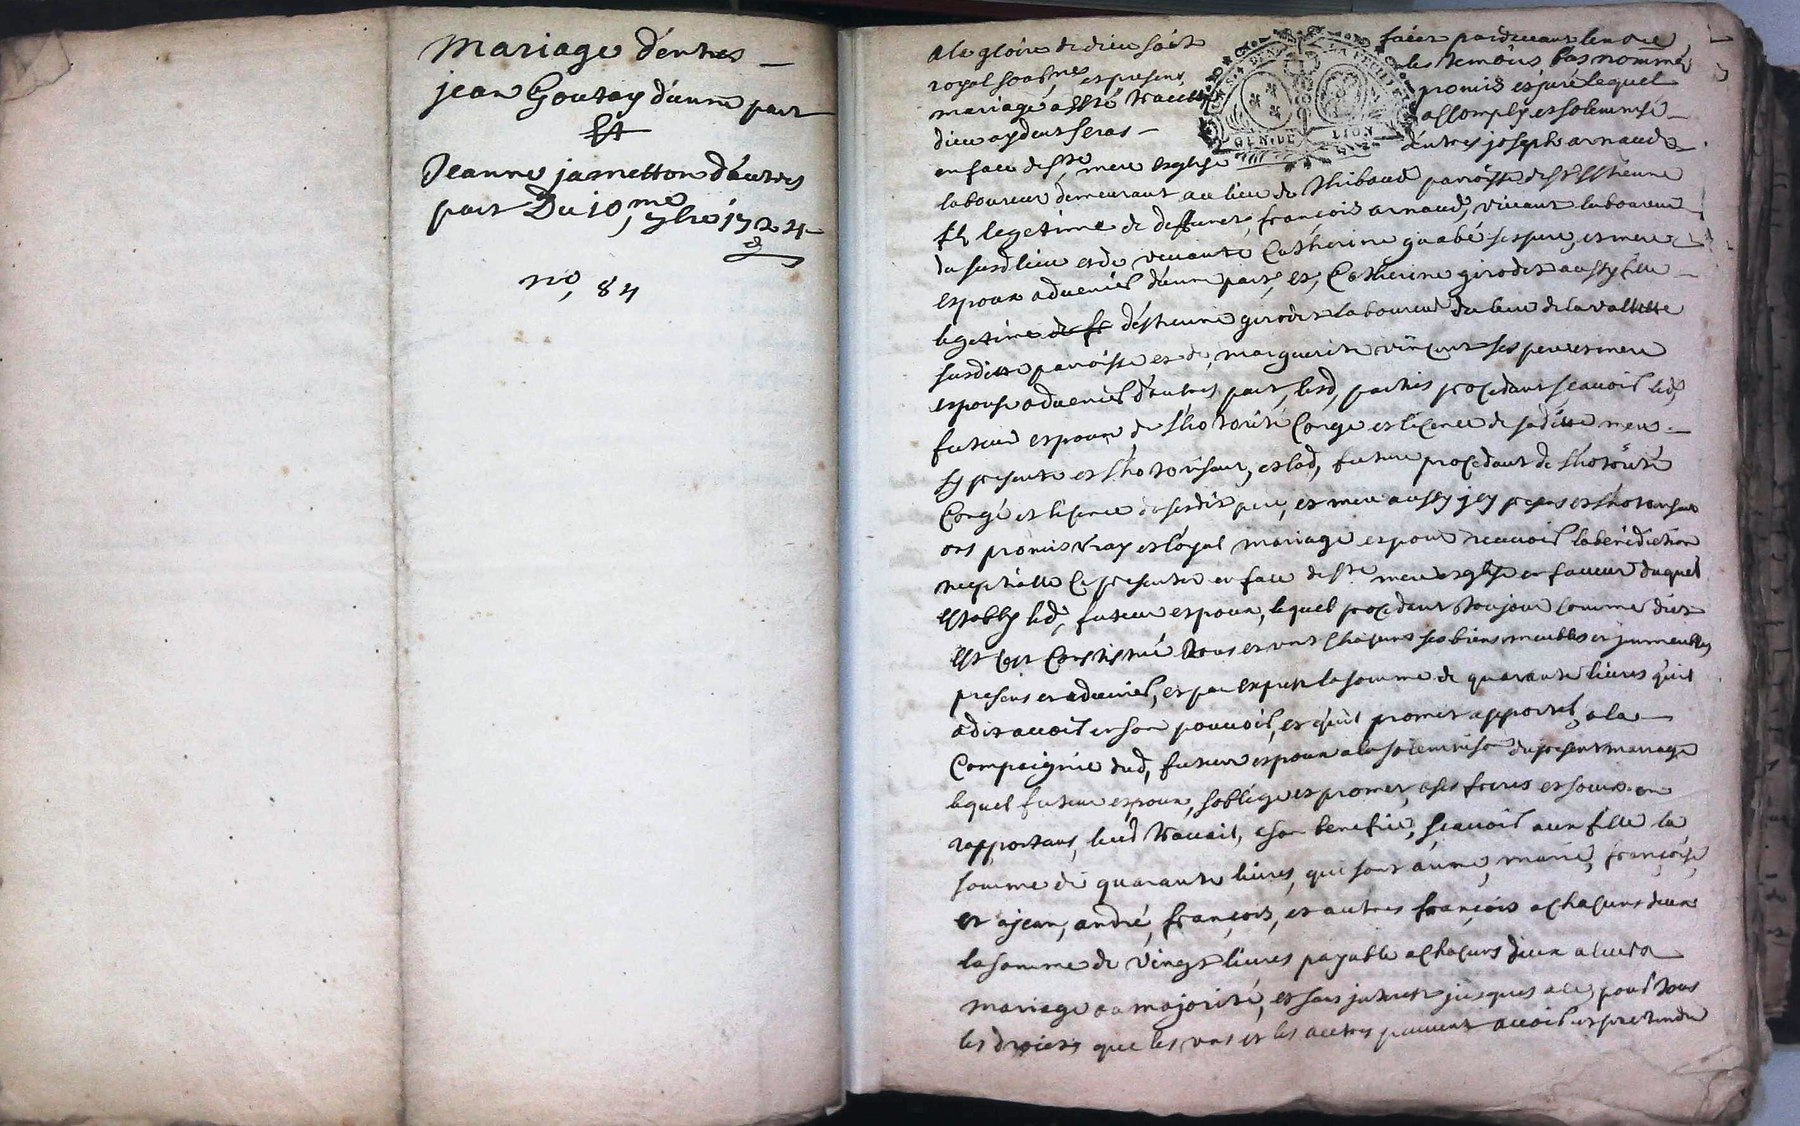 Mariage d'entres
jean Goutay d'unne part
Et
Jeanne jametton d'autres
part Du 10me 7bre 1724
no, 84
A la gloire de dieu soit faict pardevant le no.re
royal soubsnes et presens les temoins bas nommes
mariage a esté traicté promis et juré lequel
dieu aydant seras acomply et solemnisé
en face de s.te mere esglise d'entres joseph arnaud
GEN. DE LION
laboureur demeurant au lieu de Thibaud paroisse de s.t Estienne
fils legetime de deffunct françois arnaud, vivant laboureur
du susd lieu et de vivante Catherine gnabé ses pere et mere
espoux advenir d'unne part, et, Catherine girodet aussy fille
legetime de f d'estienne girodet laboureur du lieu de la vallette
susditte paroisse et de marguerite vinçent ses pere et mere
espouse advenir d'autres part, lesd, parties procedant sçavoir led,
futeur espoux de l'hotorité Congé et liçence de saditte mere
Cy presente et l'hotorisant, et lad, future procedant de l'hotorité
Congé et liçence de sesdit pere, et mere aussy jcy presens et l'hotorisant
ont promis vray et loyal mariage et pour recevoir la benediction
nuptialle Ce presenter en face de s.te mere esglise en faveur duquel
establys led, futeur espoux, lequel procedant toujour comme dict
Est C'est Constitué tous et uns chaquns ses biens meubles et jmmeubles
presens et advenir, et par exprest la somme de quarante livres qu'il
a dit avoir en son pouvoir, et qu'il promet apporter, a la
Compaignie dud, futeur espoux a la solemnisa.on du present mariage
lequel futeur espoux, s'oblige et promet, a ses freres et soeurs en
rapportans, leurd travail, a son benefice, sçavoir aux fille la
somme de quarante livres, qui sont anne, marie, françoise,
et a jean, andré, françois, et autres françois a chaquns d'eux
la somme de vingt livres payable a chaquns d'eux a leurs
mariage ou majorité, et sans jnterest jusques alors pour tous
les droicts que les uns et les autres peuvent avoir et pretendre